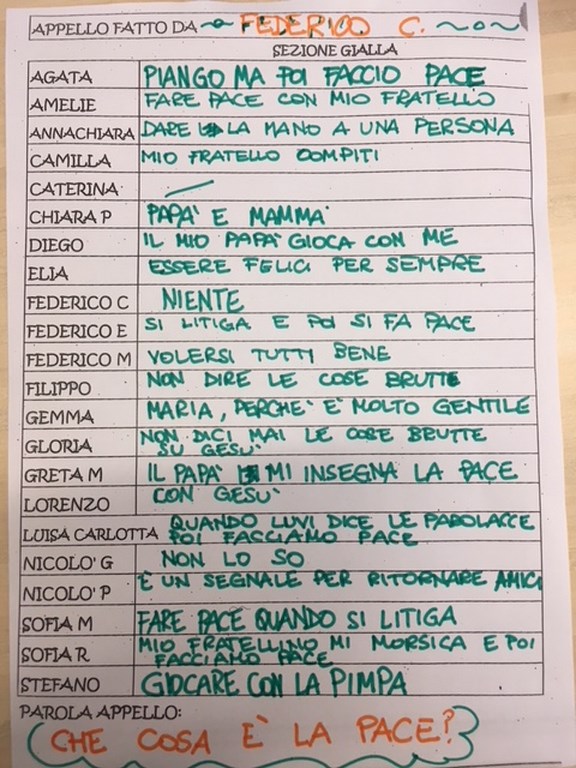 APPELLO FATTO DA FEDERICO C.
SEZIONE GIALLA
AGATA PIANGO MA POI FACCIO PACE
AMELIE FARE PACE CON MIO FRATELLO
ANNACHIARA DARE LA MANO A UNA PERSONA
CAMILLA MIO FRATELLO COMPITI
CATERINA —
CHIARA P PAPA' E MAMMA'
DIEGO IL MIO PAPA' GIOCA CON ME
ELIA ESSERE FELICI PER SEMPRE
FEDERICO C NIENTE
FEDERICO E SI LITIGA E POI SI FA PACE
FEDERICO M VOLERSI TUTTI BENE
FILIPPO NON DIRE LE COSE BRUTTE
GEMMA MARIA, PERCHE' E' MOLTO GENTILE
GLORIA NON DICI MAI LE COSE BRUTTE
SU GESU'
GRETA M IL PAPA' MI INSEGNA LA PACE
LORENZO CON GESU'
LUISA CARLOTTA QUANDO LUVI DICE LE PAROLACCE
POI FACCIAMO PACE
NICOLO' G NON LO SO
NICOLO' P È UN SEGNALE PER RITORNARE AMICI
SOFIA M FARE PACE QUANDO SI LITIGA
SOFIA R MIO FRATELLINO MI MORSICA E POI
FACCIAMO PACE
STEFANO GIOCARE CON LA PIMPA
PAROLA APPELLO:
CHE COSA E' LA PACE?